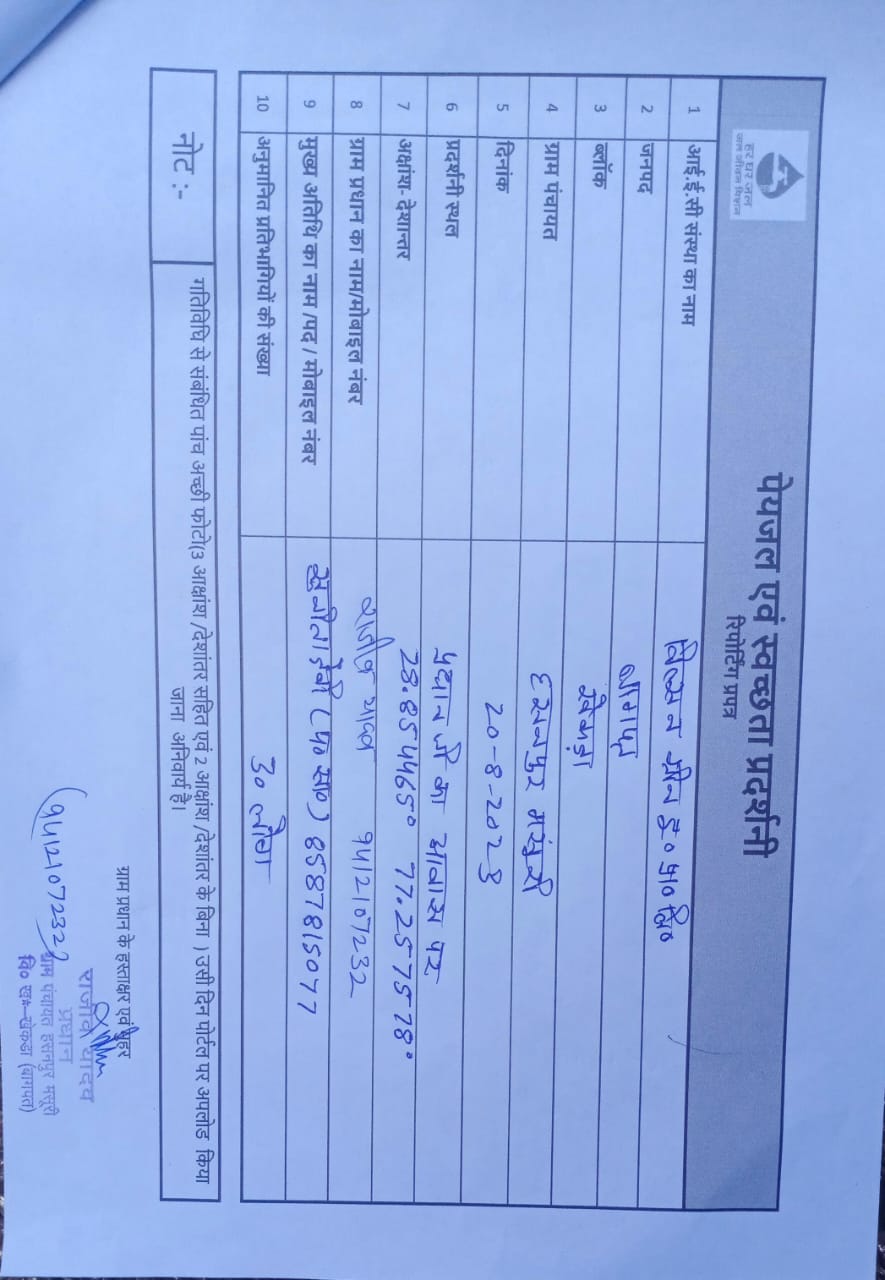 हर घर जल
जल जीवन मिशन
पेयजल एवं स्वच्छता प्रदर्शनी
रिपोर्टिंग प्रपत्र
1 आई.ई.सी संस्था का नाम
2 जनपद बागपत
3 ब्लॉक खेकड़ा
4 ग्राम पंचायत हसनपुर मसूरी
5 दिनांक 20-8-2023
6 प्रदर्शनी स्थल प्रधान जी का आवास पर
7 अक्षांश- देशान्तर 28.854465° 77.257578°
8 ग्राम प्रधान का नाम/मोबाइल नंबर राजीव यादव 9412107232
9 मुख्य अतिथि का नाम /पद / मोबाइल नंबर सुनीता देवी 8587815077
10 अनुमानित प्रतिभागियों की संख्या 30 लोग
नोट :-
गतिविधि से संबंधित पांच अच्छी फोटो(3 आक्षांश /देशांतर सहित एवं 2 आक्षांश /देशांतर के बिना ) उसी दिन पोर्टल पर अपलोड किया
जाना अनिवार्य है।
ग्राम प्रधान के हस्ताक्षर एवं मुहर
राजीव यादव
प्रधान
9412107232
ग्राम पंचायत हसनपुर मसूरी
वि० ख०-खेकडा (बागपत)